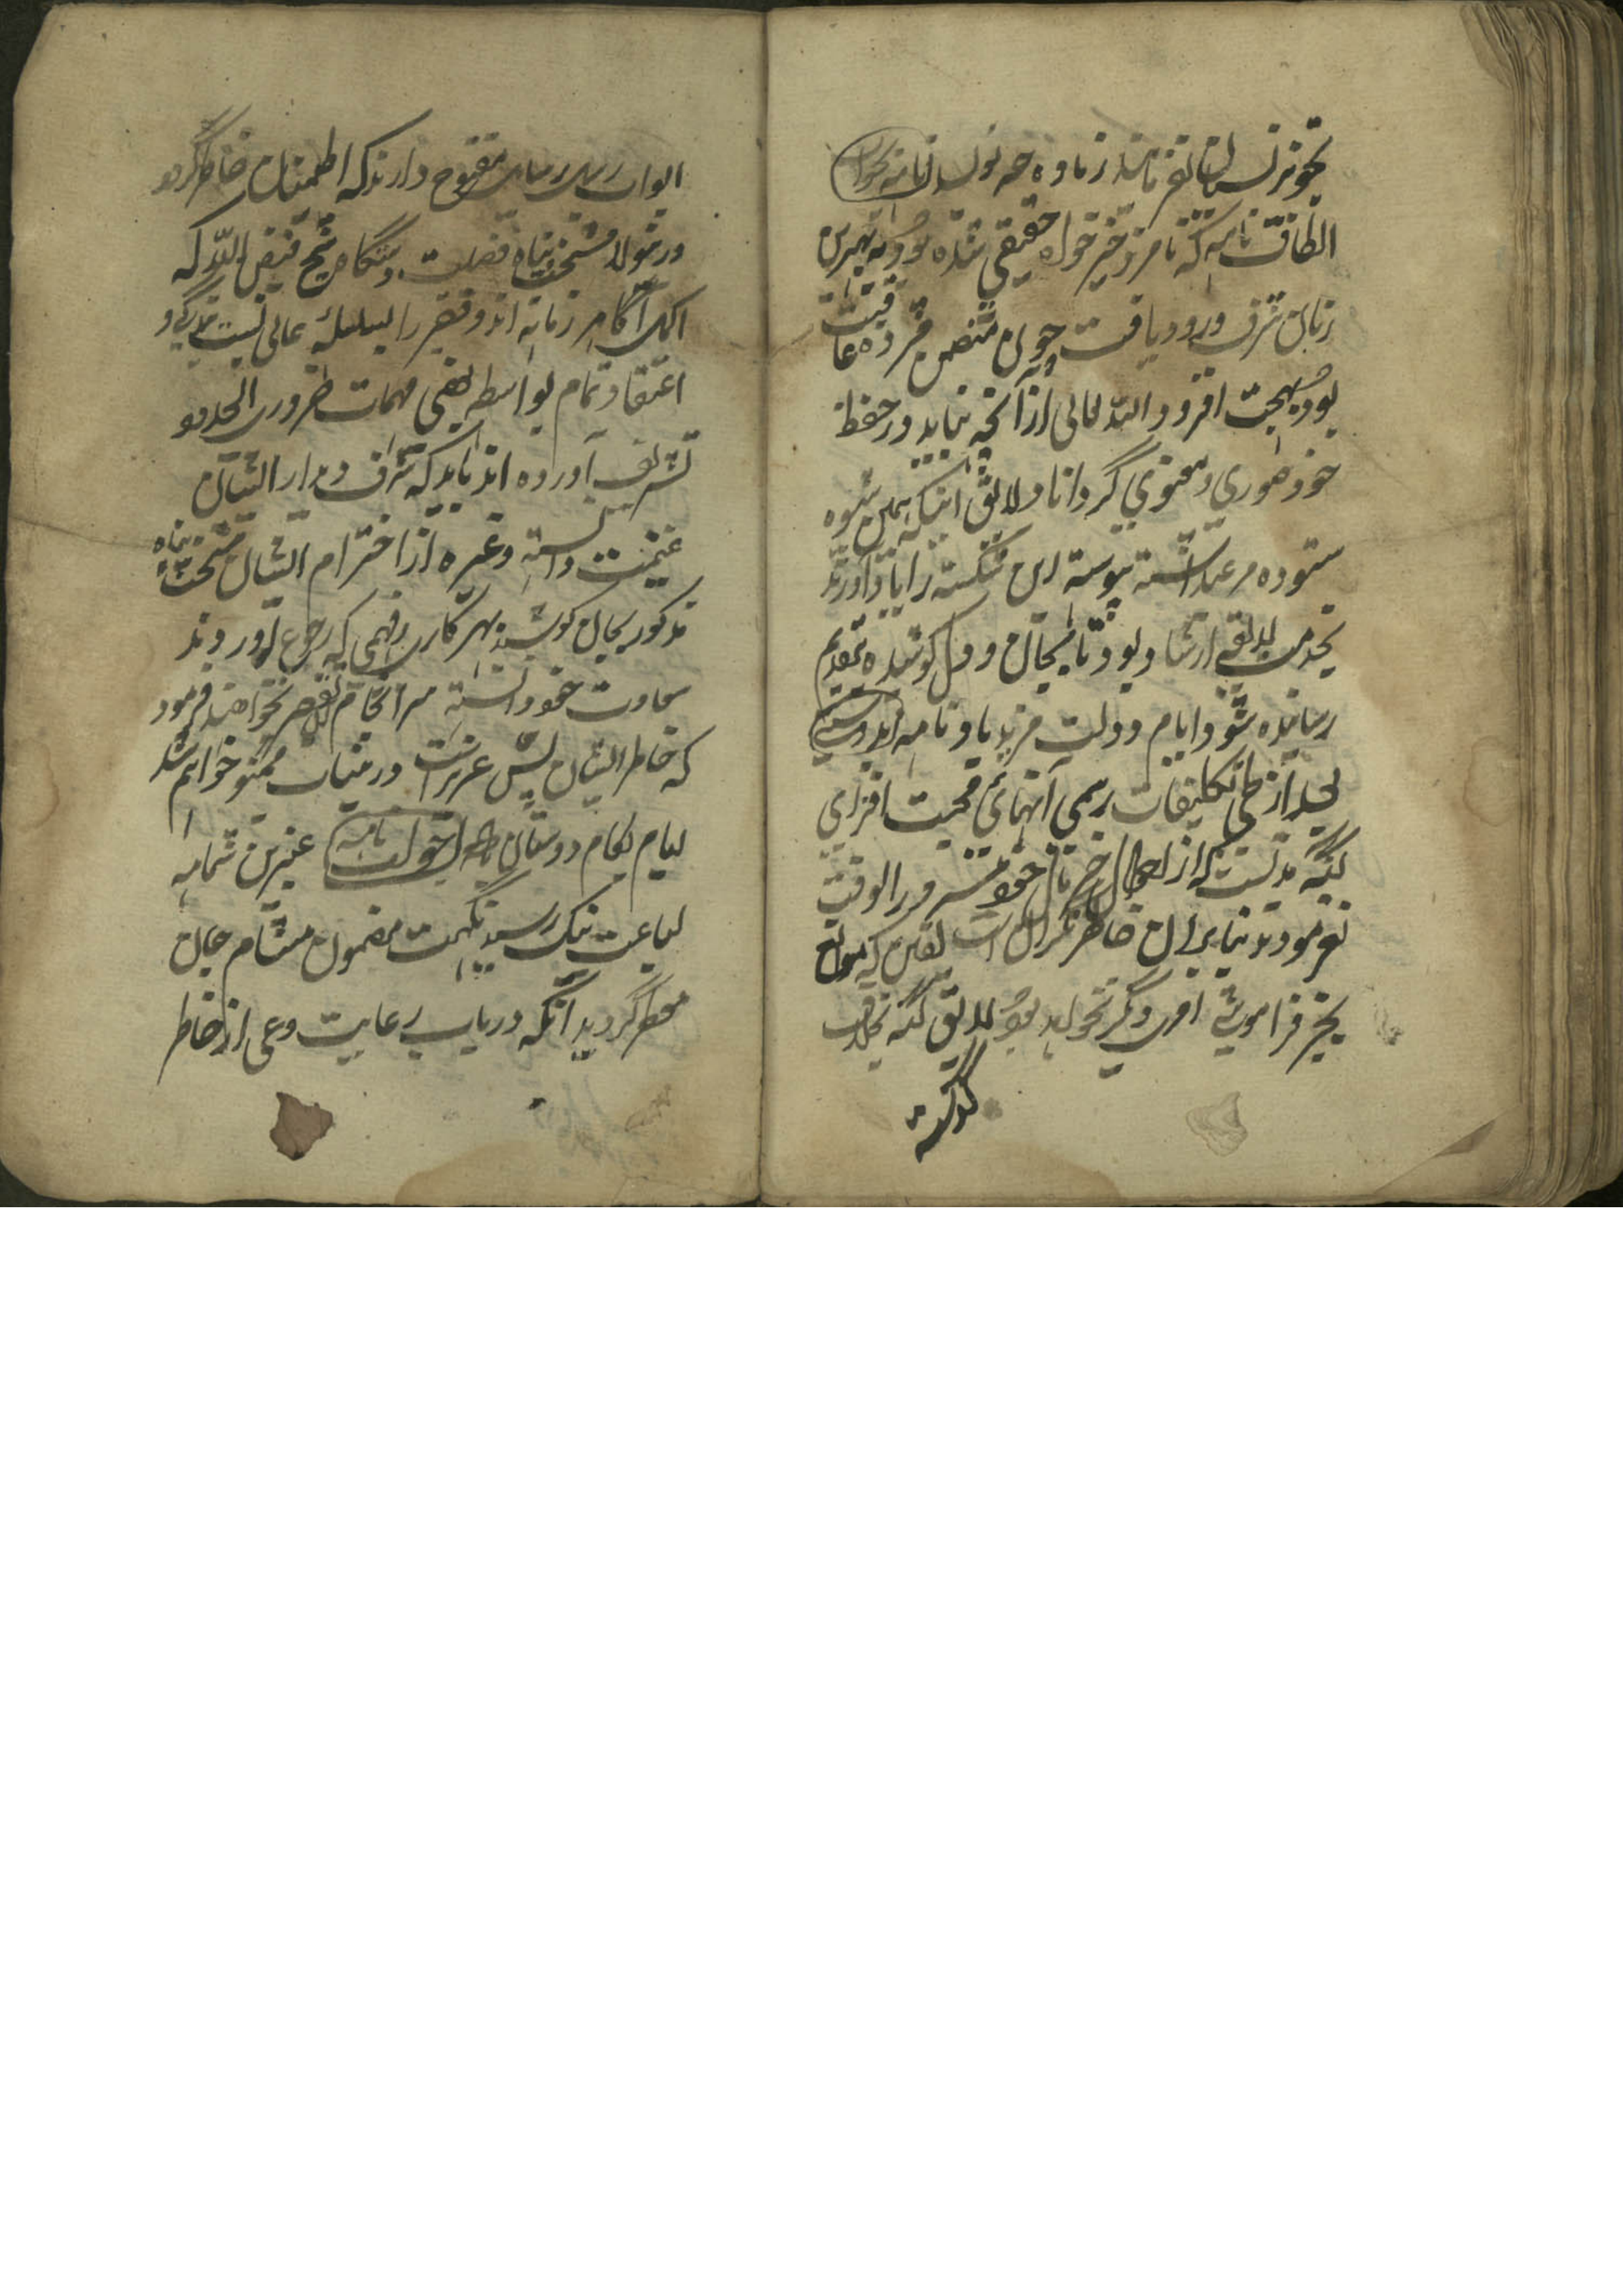 تجویز نسیان نفرمایند زیاده چه نویسد نامه جواب
الطاف نامه که نامزد خیرخواه حقیقی شده بود به بهترین
زمان شرف ورود یافت چون متضمن مژده عافیت
بود بهجت افزود الله تعالی از آنچه نباید در حفظ
خود صوری و معنوی گرداناد لائق اینکه همین شیوه
ستوده مرعی داشته پیوسته این شکسته را یاد آورند
بخدمت لایقی ارشاد بود تا بجان و دل کوشیده بتقدیم
رسانیده شود ایام دولت مزید باد نامه
بعد از طی تکلیفات رسمی آنهای محبت افزای
گشته مدتیست که از احوال خیر مآل خود مسرور الوقت
نفرمودند بنابران خاطر نگران است یقین که موانع
بجز فراموشی امری دیگر نخواهد بود لایق آنکه بخلاف
گذشته
ابواب رسل رسایل مفتوح دارند که اطمینان خاطر گردد
درینولا مشیخت پناه فضیلت دستگاه شیخ فیض الله که
اکمل زمانه اند و فقیر را بسلسله عالی نسبت بندگی و
اعتقاد تمام بواسطه بعضی مهمات ضروری
تشریف آورده اند باید که شرف دیدار ایشان
غنیمت دانسته وغیره از احترام ایشان مشیخت پناه
مذکور بجان کوشند بهر کاری و مهمی که رجوع آورند
سعادت خود دانسته سرانجام تقصیر نخواهند فرمود
که خاطر ایشان بس عزیز است درینباب ممنون خواهم شد
ایام بکام دوستان باد جواب نامه عنبرین شمامه
بساعت نیک رسید نگهت مضمون مشام جان
معطر گردید آنکه در باب رعایت و عمی از خاطر